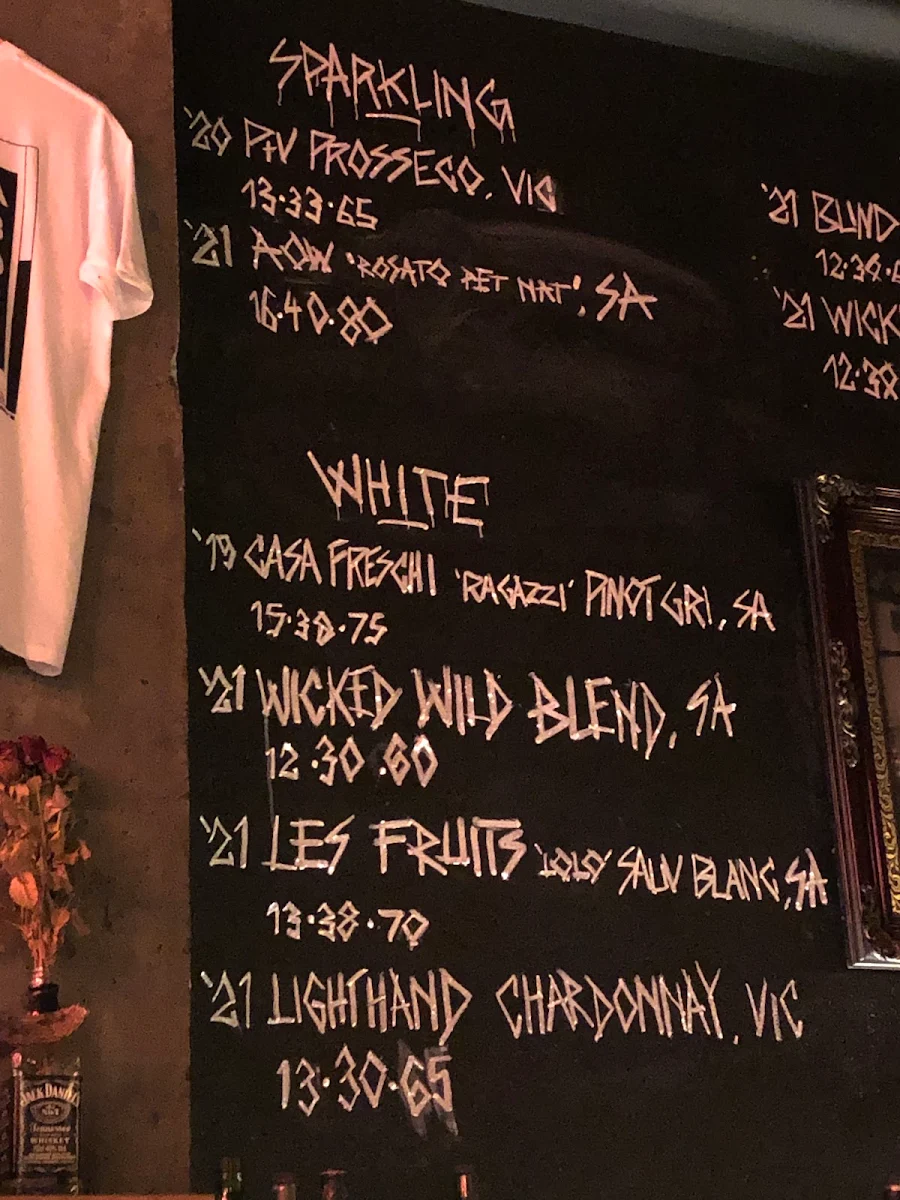 SPARKLING
'20 P+V PROSSECO, VIC
13·33·65
'21 AOW 'ROSATO PET NAT', SA
16·40·80
WHITE
'19 CASA FRESCHI 'RAGAZZI' PINOT GRI, SA
15·38·75
'21 WICKED WILD BLEND, SA
12·30·60
'21 LES FRUITS 'LOLO' SAUV BLANC, SA
13·38·70
'21 LIGHTHAND CHARDONNAY, VIC
13·30·65
'21 BLIND
'21 WICK
12·30
JACK DANIEL'S
Tennessee
WHISKEY